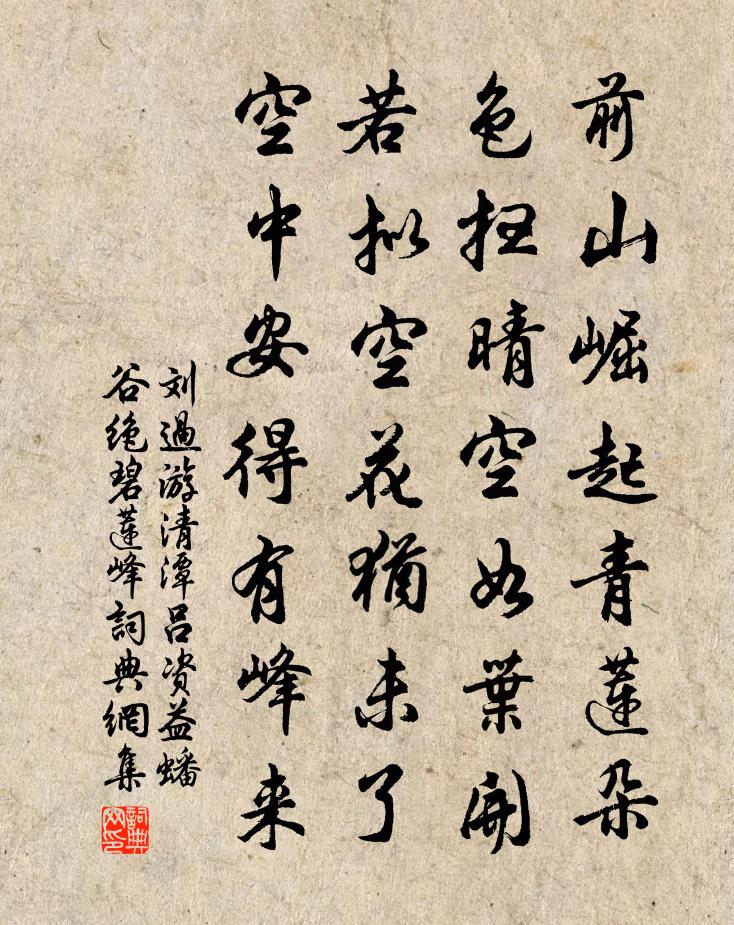 前山崛起青蓮朵
色扫晴空如葉開
若拟空花猶未了
空中安得有峰来
刘過游清潭吕资益蟠
谷绝碧蓮峰詞典網集
詞典
网印